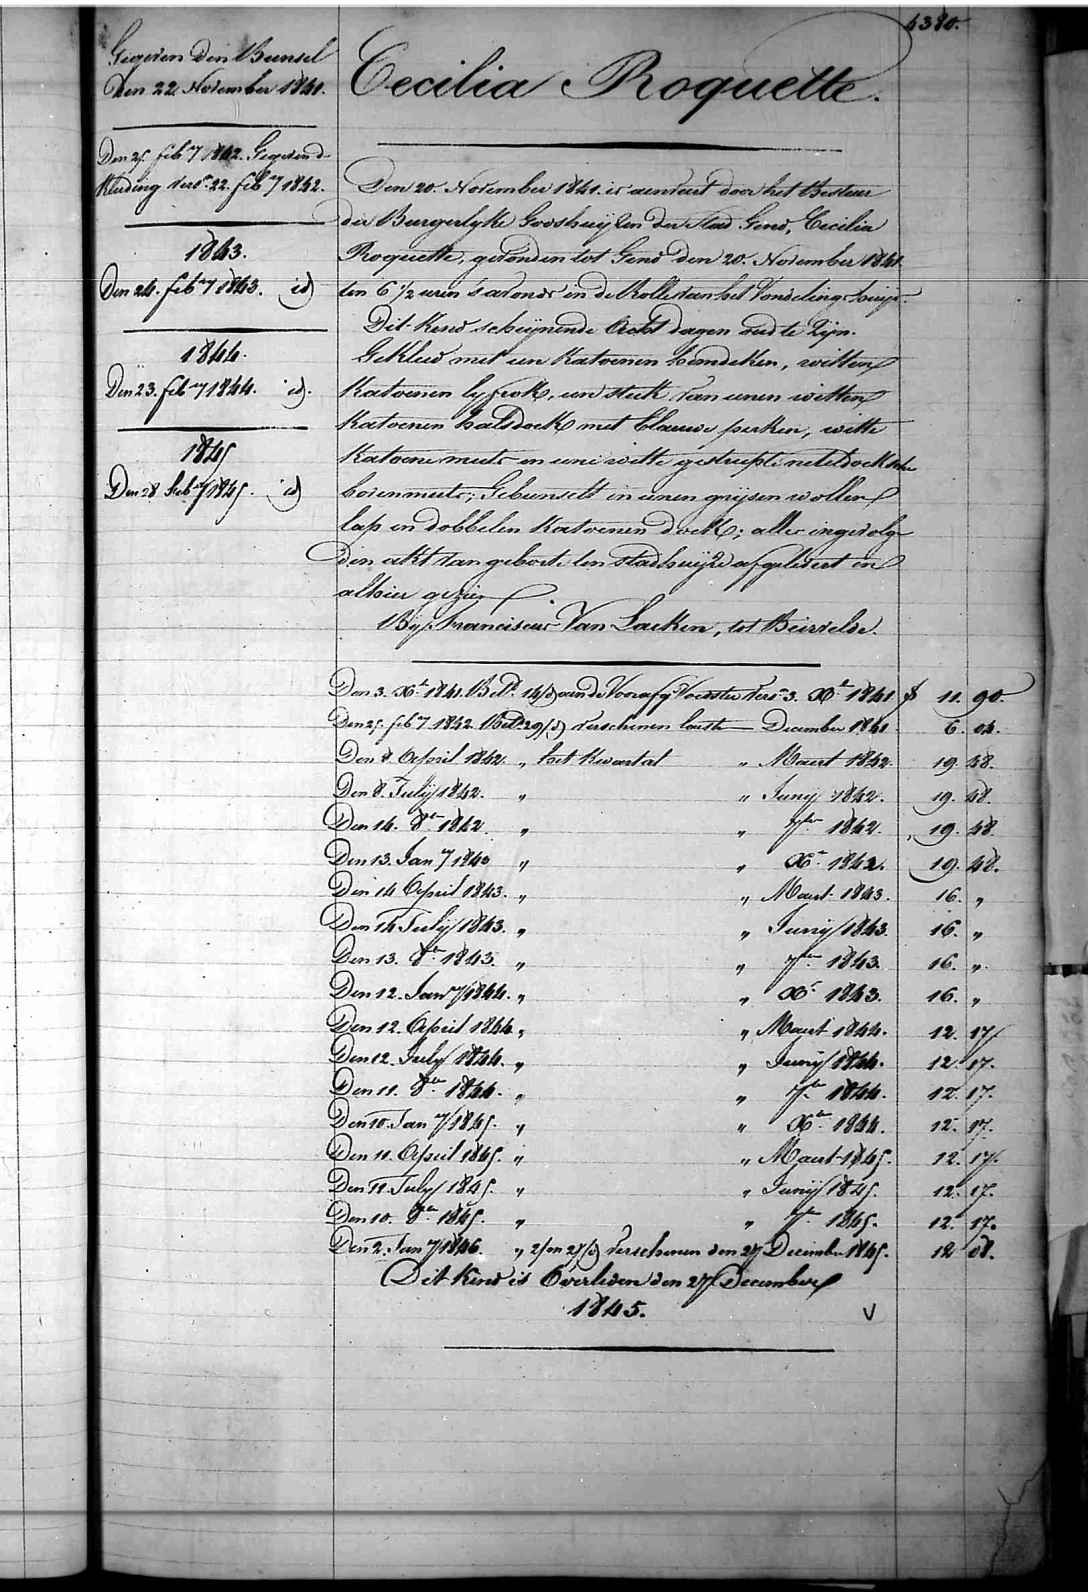 4380.
Gegeven Den Bunsel
Den 22 November 1841.
Den 25 feb.ry 1842. Gegeven d
Kleeding vers. 22. feb.ry 1842.
1843.
Den 24. feb.ry 1843. id
1844.
Den 23. feb.ry 1844. id.
1845
Den 28 Feb.ry 1845. id
Cecilia Roquette.
Den 20 November 1841. is aenveert door het Bestuer
der Burgerlyke Godshuijzen der Stad Gend, Cecilia
Roquette, gevonden tot Gend den 20. November 1841.
ten 6 1/2 uren s'avonds in de Rolle van het Vondelingshuijs.
Dit Kind schijnende Acht dagen oud te zijn.
Gekleed met een Katoenen hemdeken, witten
Katoenen lyfrok, een stuk van eenen witten
Katoenen halsdoek met blauwe perken, witte
Katoene muts en eene witte gestreepte neteldoeksche
bovenmuts; Gebunselt in eenen grijsen wollen
lap en dobbelen Katoenen doek; alles ingevolge
den akt van geboorte ten stadhuijze afgelevert en
alhier gezien
Bij Franciscus Van Laeken, tot Beirvelde.
Den 3. Xr 1841. Bet. 14/d aen de Voorafg Voedster vers. 3. Xr 1841 f 11. 90.
Den 25. feb.y 1842. Bet. 29/d verschenen laeste December 1841 6. 04.
Den 8. April 1842. „ het kwartal „ Maert 1842 19. 48.
Den 8. July 1842. „ „ Juny 1842. 19. 48.
Den 14. 8er 1842 „ „ 7er 1842. 19. 48
Den 13. Jan.y 1843 „ „ Xr 1842. 19. 48.
Den 14 April 1843. „ „ Maert 1843. 16. „
Den 14 July 1843. „ „ Juny 1843. 16. „
Den 13. 8er 1843. „ „ 7er 1843. 16. „
Den 12. Jan.y 1844. „ „ Xr 1843. 16. „
Den 12. April 1844 „ „ Maert 1844. 12. 17
Den 12. July 1844. „ „ Juny 1844. 12 17.
Den 11. 8er 1844. „ „ 7er 1844. 12. 17.
Den 10. Jan.y 1845. „ „ Xr 1844. 12. 17.
Den 11. April 1845. „ „ Maert 1845. 12. 17.
Den 11. July 1845. „ „ Juny 1845. 12. 17.
Den 10. 8er 1845. „ „ 7er 1845. 12. 17.
Den 2. Jan.y 1846. „ 2/m 27/d verschenen den 27 December 1845. 12 08.
Dit Kind is Overleden den 27 December
1845. V